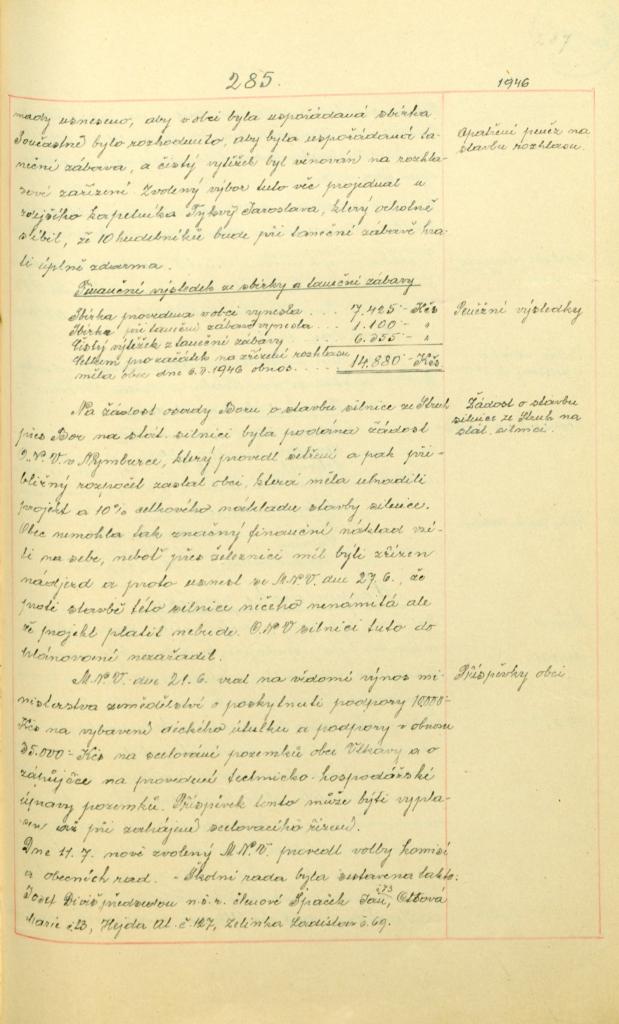 285.
1946
mady usneseno, aby v obci byla uspořádaná sbírka.
Současně bylo rozhodnuto, aby byla uspořádaná ta-
neční zábava, a čistý výtěžek byl věnován na rozhla-
sové zařízení. Zvolený výbor tuto věc projednal u
zdejšího kapelníka Jaroslava, který ochotně
slíbil, že 10 hudebníků bude při taneční zábavě hrá-
ti úplně zdarma.
Opatření peněz na
stavbu rozhlasu.
Finanční výsledek ze sbírky a taneční zábavy
Sbírka provedena v obci vynesla . . . 7.425·- Kčs
Sbírka při taneční zábavě vynesla . . . 1.100·- "
Čistý výtěžek z taneční zábavy . . . 6.355·- "
Celkem pro začátek na zřízení rozhlasu
měla obec dne 1946 obnos . . . . 14.880·- Kčs
Peněžní výsledky
Na žádost osady Boru o stavbu silnice ze Struh
přes Bor na stát. silnici byla podána žádost
O.N.V. v Nymburce, který provedl šetření a pak při-
bližný rozpočet zaslal obci, která měla uhraditi
projekt a 10% celkového nákladu stavby silnice.
Obec nemohla tak značný finanční náklad vzí-
ti na sebe, neboť přes železnici měl býti zřízen
nadjezd a proto usnesl se M.N.V. dne 27.6., že
proti stavbě této silnice ničeho nenámitá ale
že projekt platit nebude. O.N.V silnici tuto do
plánované nezařadil.
Žádost o stavbu
silnice ze Struh na
stát. silnici.
M.N.V. dne 21.6. vzal na vědomí výnos mi-
nisterstva zemědělství o poskytnutí podpory 10.000·-
Kčs na vybavení dětského útulku a podpory v obnosu
35.000·- Kčs na scelování pozemků obce Vlkavy a o
zápůjčce na provedení technicko-hospodářské
úpravy pozemků. Příspěvek tento může býti vypla-
cen až při zahájení scelovacího řízení.
Příspěvky obci
Dne 11.7. nově zvolený M.N.V. provedl volby komisí
a obecních rad. - Školní rada byla sestavena takto:
Josef Diviš předsedou m.š.r. členové Špaček Jan č.73,
Marie č.23, Hejda Al. č.127, Zelinka Ladislav č.69.